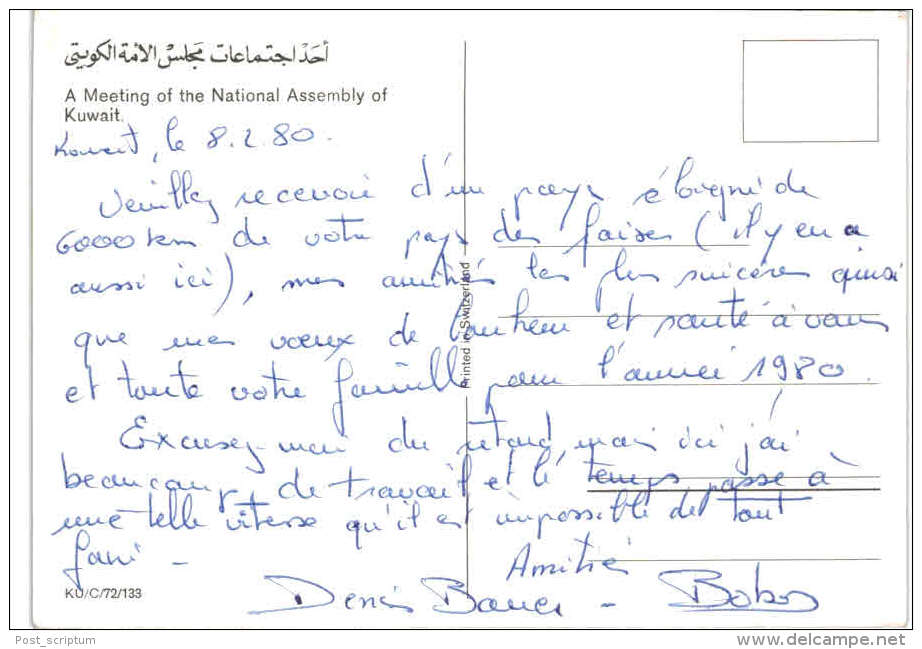 أحد اجتماعات مجلس الأمة الكويتي
A Meeting of the National Assembly of
Kuwait.
Koweit, le 8.2.80.
Veuillez recevoir d'un pays éloigné de
6000 km de votre pays des (il y en a
aussi ici), mes amitiés les plus sincères ainsi
que mes vœux de bonheur et santé à vous
et toute votre famille pour l'année 1980.
Excusez-moi du retard, mais ici j'ai
beaucoup de travail et le temps passe à
une telle vitesse qu'il est impossible de tout
faire -
Amitiés
Denis -
Printed in Switzerland
KU/C/72/133
Post_scriptum
delcampe.net